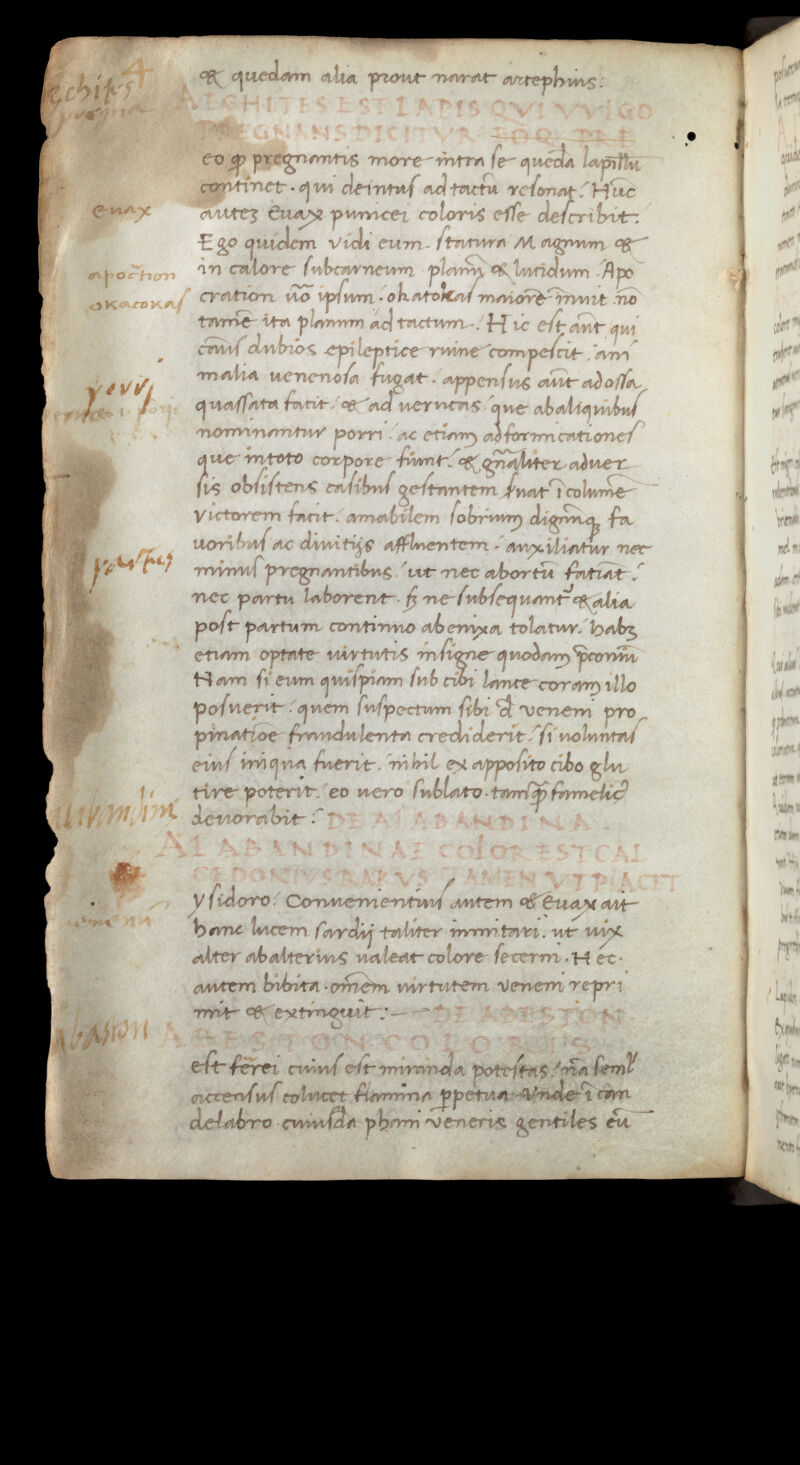 & quedam alia prout narat artephius:
AECHITES EST LAPIS QVI VVLGO
PREGNANS DICITVR EOQ
eo ꝙ pregnantis more intra se queda̅ lapillu̅
continet. qui deintus ad tactu̅ resonat. Hu̅c
auteʒ Euax punicei coloris esse describit.
Ego quidem vidi eum. statura Magnum &
in calore subcarneum planu̅ & lucidum. Apo
cration u̅o ipsum. okatokas maiore̅ innuit no̅
tame̅ ita planum ad tactum. Hic est aut̅ qui
casus dubios epileptice ruine compescit. ani
malia uenenosa fugat. appensus aut̅ ad ossa
quassata facit. & ad uerucas. que ab aliquibus
nominantur porri. ac etiam ad formicationes
que in toto corpore fiunt. & gn̅aliter aduer
sis obsistens casibus gestantem s̅uat i̅colume̅
victorem facit. amabilem sobrium dignu̅qꝫ fa
uoribus ac diuitijs affluentem. auxiliatur nec
minus pregnantibus. ut nec abortu̅ fatiat.
nec partu laborent. sꝫ ne subsequant᷑ & alia
post partum continuo ab enixa tolatur. habꝫ
etiam optate uirtutis insigne quodam p̅coniu̅
Nam si eum quispiam sub cibi lance coram illo
posuerit. quem suspectum sibi d̅ veneni pro
pinatio̅e fraudulenta crediderit. si uoluntas
eius iniqua fuerit. nihil ex apposito cibo glu
tire poterit. eo uero sublato. tamq̅ famelic᷒
deuorabit: DE ALABANDINA
ALABANDINAE COLOR EST CAL
CEDONIVS RARVS TAMEN VT PLACET
ysidoro. Conuenientius autem & Euax ait
hanc lucem sardij taliter inmitari. ut uix
alter ab alterius ualeat colore secerni. Hec
autem bibita. om̅em uirtutem veneni repri
mit & extinguit: DE ABESTON
ABESTON COLORIS
est ferei cuius est miranda potestas. na̅ seml̅
accensus colucet flamma p̱petua. Vnde i̅ can
delabro. cuiusda̅ phani veneris gentiles eu̅
echites
pregna
euax
apoc̅tion
okatokas
porrj
partus
alavandine
abaston